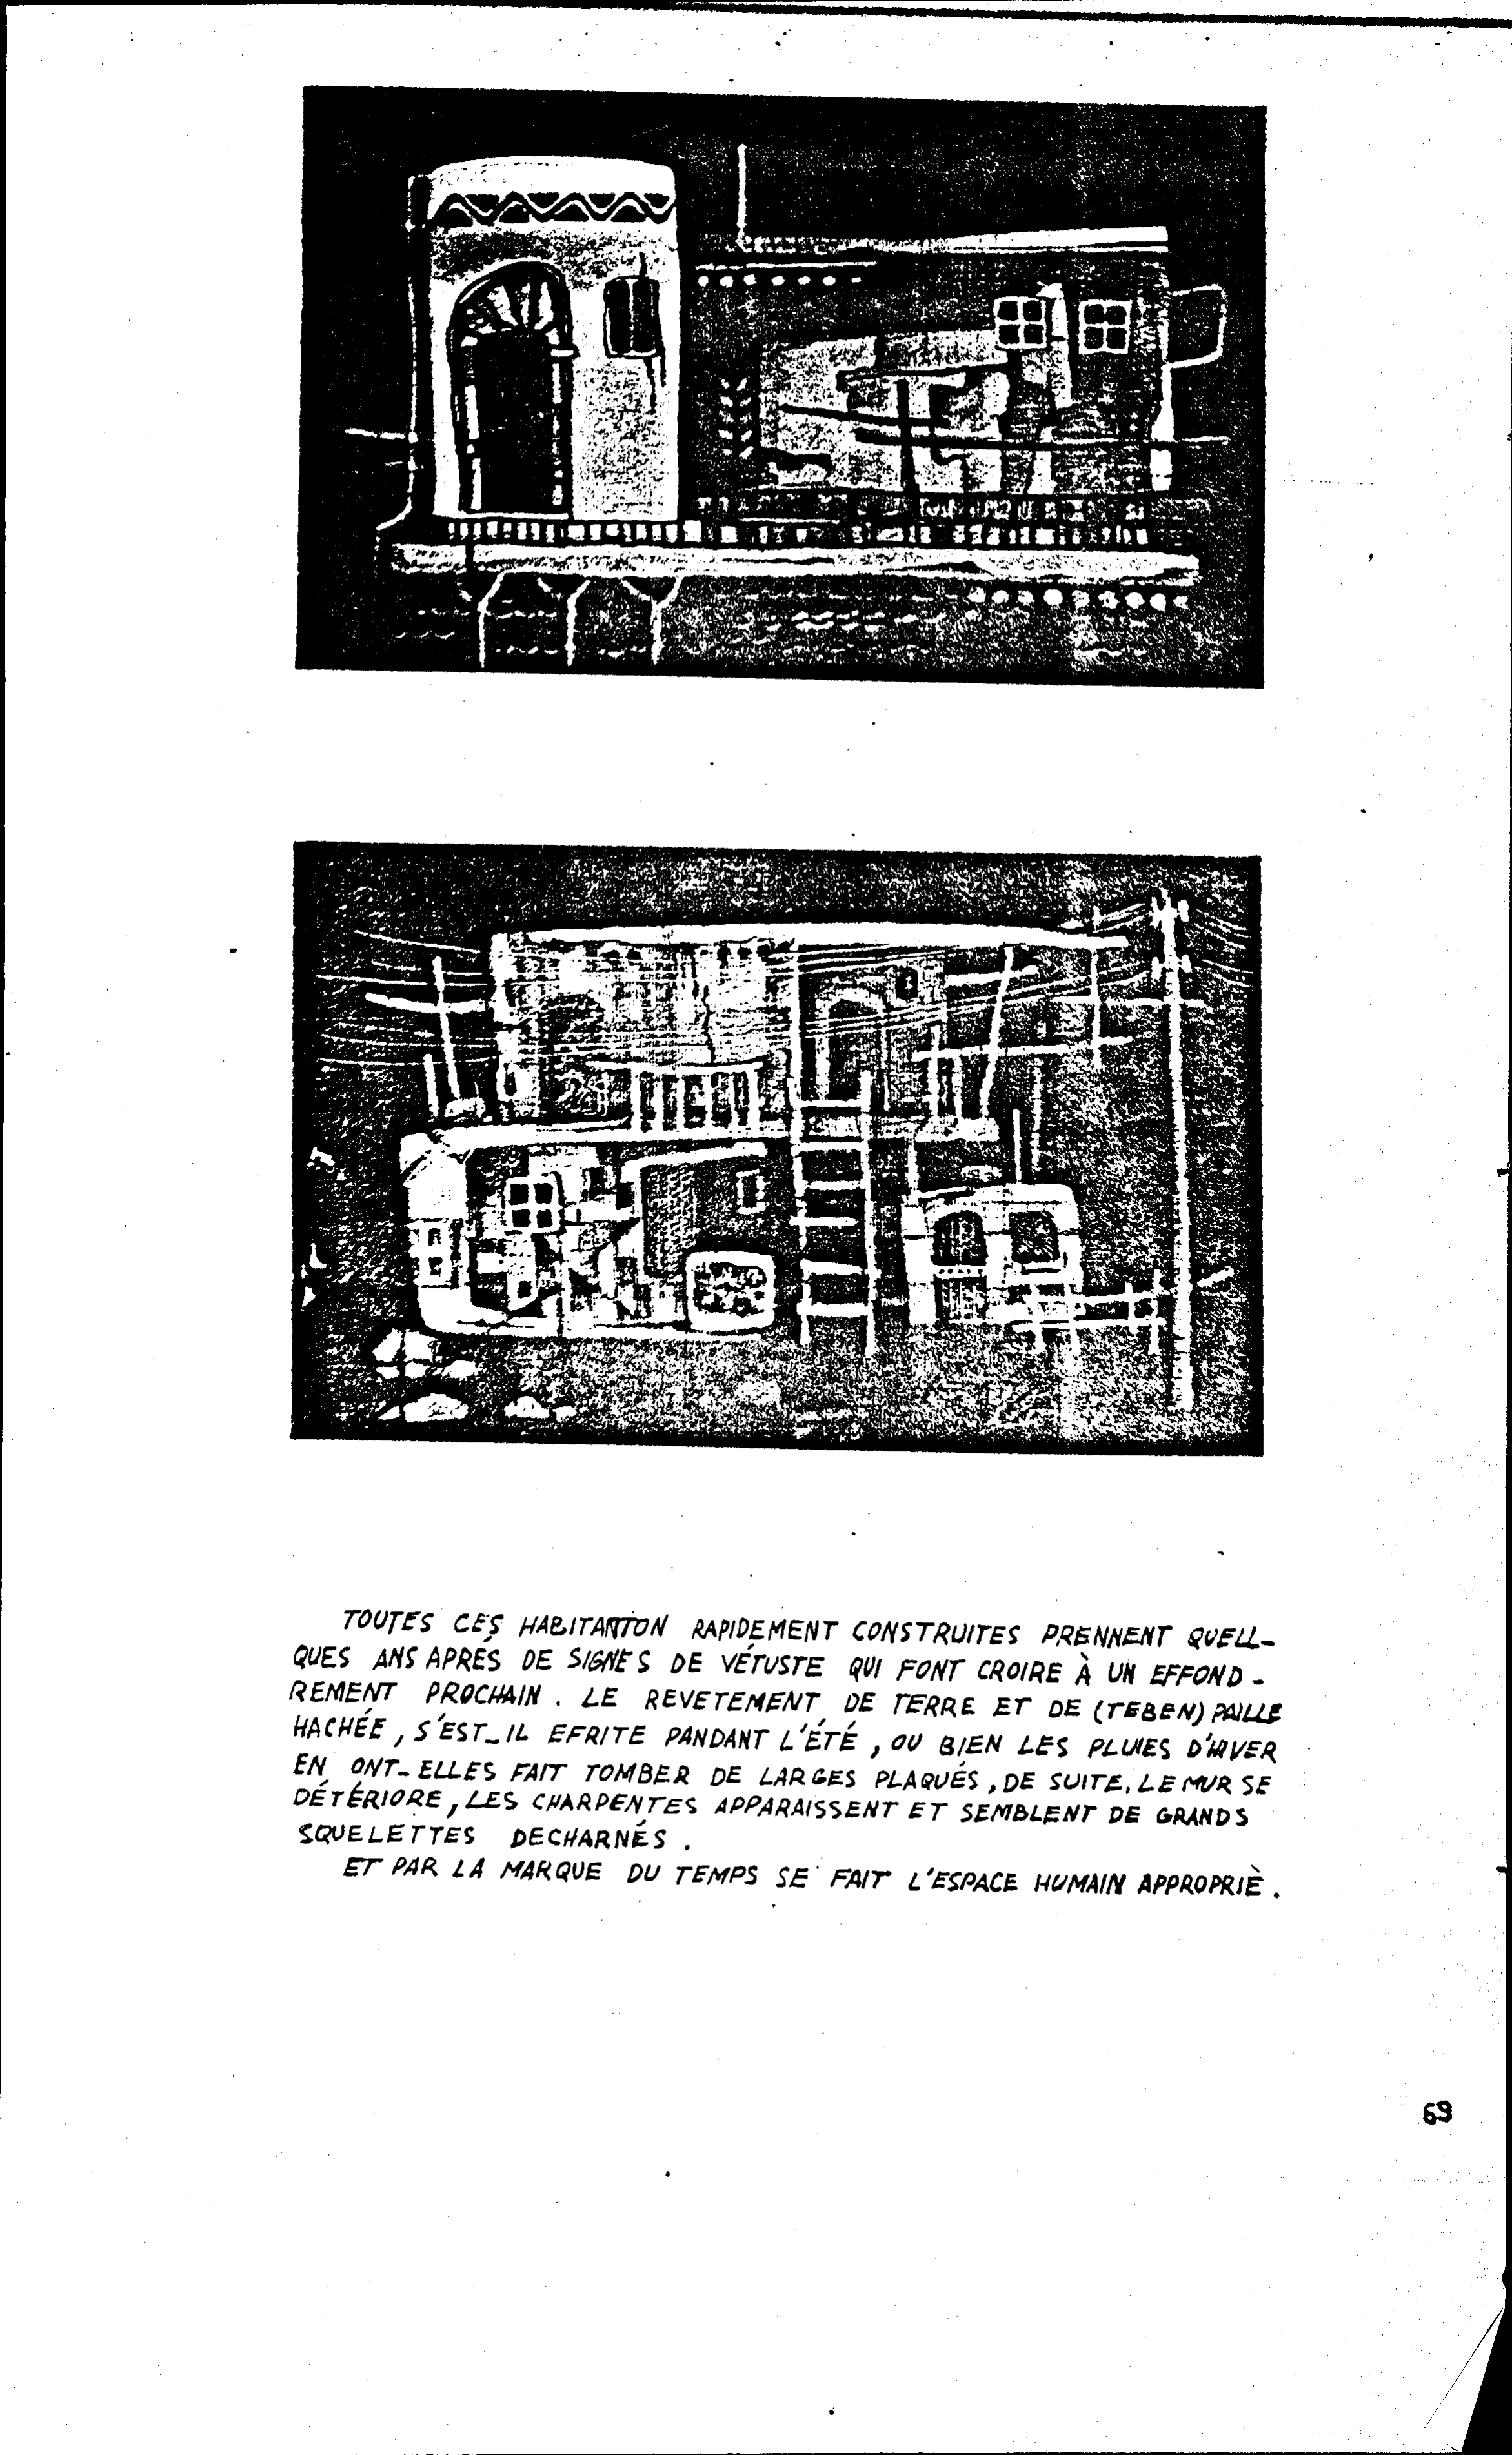 TOUTES CES HABITANTON RAPIDEMENT CONSTRUITES PRENNENT QUELL-
QUES ANS APRÉS DE SIGNES DE VÉTUSTE QUI FONT CROIRE À UN EFFOND-
REMENT PROCHAIN. LE REVETEMENT DE TERRE ET DE (TEBEN) PAILLE
HACHÉE, S'EST_IL EFRITE PANDANT L'ÉTÉ, OU BIEN LES PLUIES D'HIVER
EN ONT_ELLES FAIT TOMBER DE LARGES PLAQUÉS, DE SUITE, LE MUR SE
DÉTÉRIORE, LES CHARPENTES APPARAISSENT ET SEMBLENT DE GRANDS
SQUELETTES DECHARNÉS.
ET PAR LA MARQUE DU TEMPS SE FAIT L'ESPACE HUMAIN APPROPRIÈ.
69